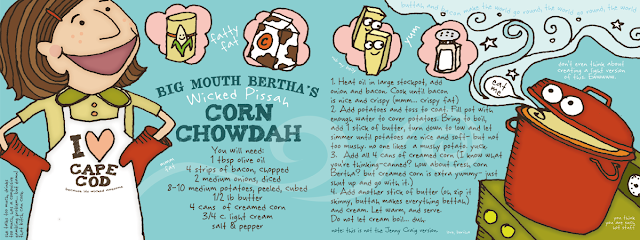 fatty
fat
yum
buttah and bacon make the world go round, the world go round, the world
don't even think about
creating a light version
of this bahamma.
eat
me
BIG MOUTH BERTHA'S
Wicked Pissah
CORN
CHOWDAH
You will need:
1 tbsp olive oil
4 strips of bacon, chopped
2 medium onions, diced
8-10 medium potatoes, peeled, cubed
1/2 lb butter
4 cans of creamed corn
3/4 c. light cream
salt & pepper
I
CAPE
COD
1. Heat oil in large stockpot, add
onion and bacon. Cook until bacon
is nice and crispy (mmm... crispy fat)
2. Add potatoes and toss to coat. Fill pot with
enough water to cover potatoes. Bring to boil,
add 1 stick of butter, turn down to low and let
simmer until potatoes are nice and soft- but not
too mushy. no one likes a mushy potato. yuck.
3. Add all 4 cans of creamed corn (I know what
you're thinking-"canned? wow about fresh, corn
Bertha? but creamed corn is extra yummy- just
shut up and go with it.)
4. Add another stick of butter (ok, zip it
skinny, buttah makes everything bettah)
and cream. Let warm, and serve.
Do not let cream boil... duh.
note: this is not the Jenny Craig version.
you think
you are easy,